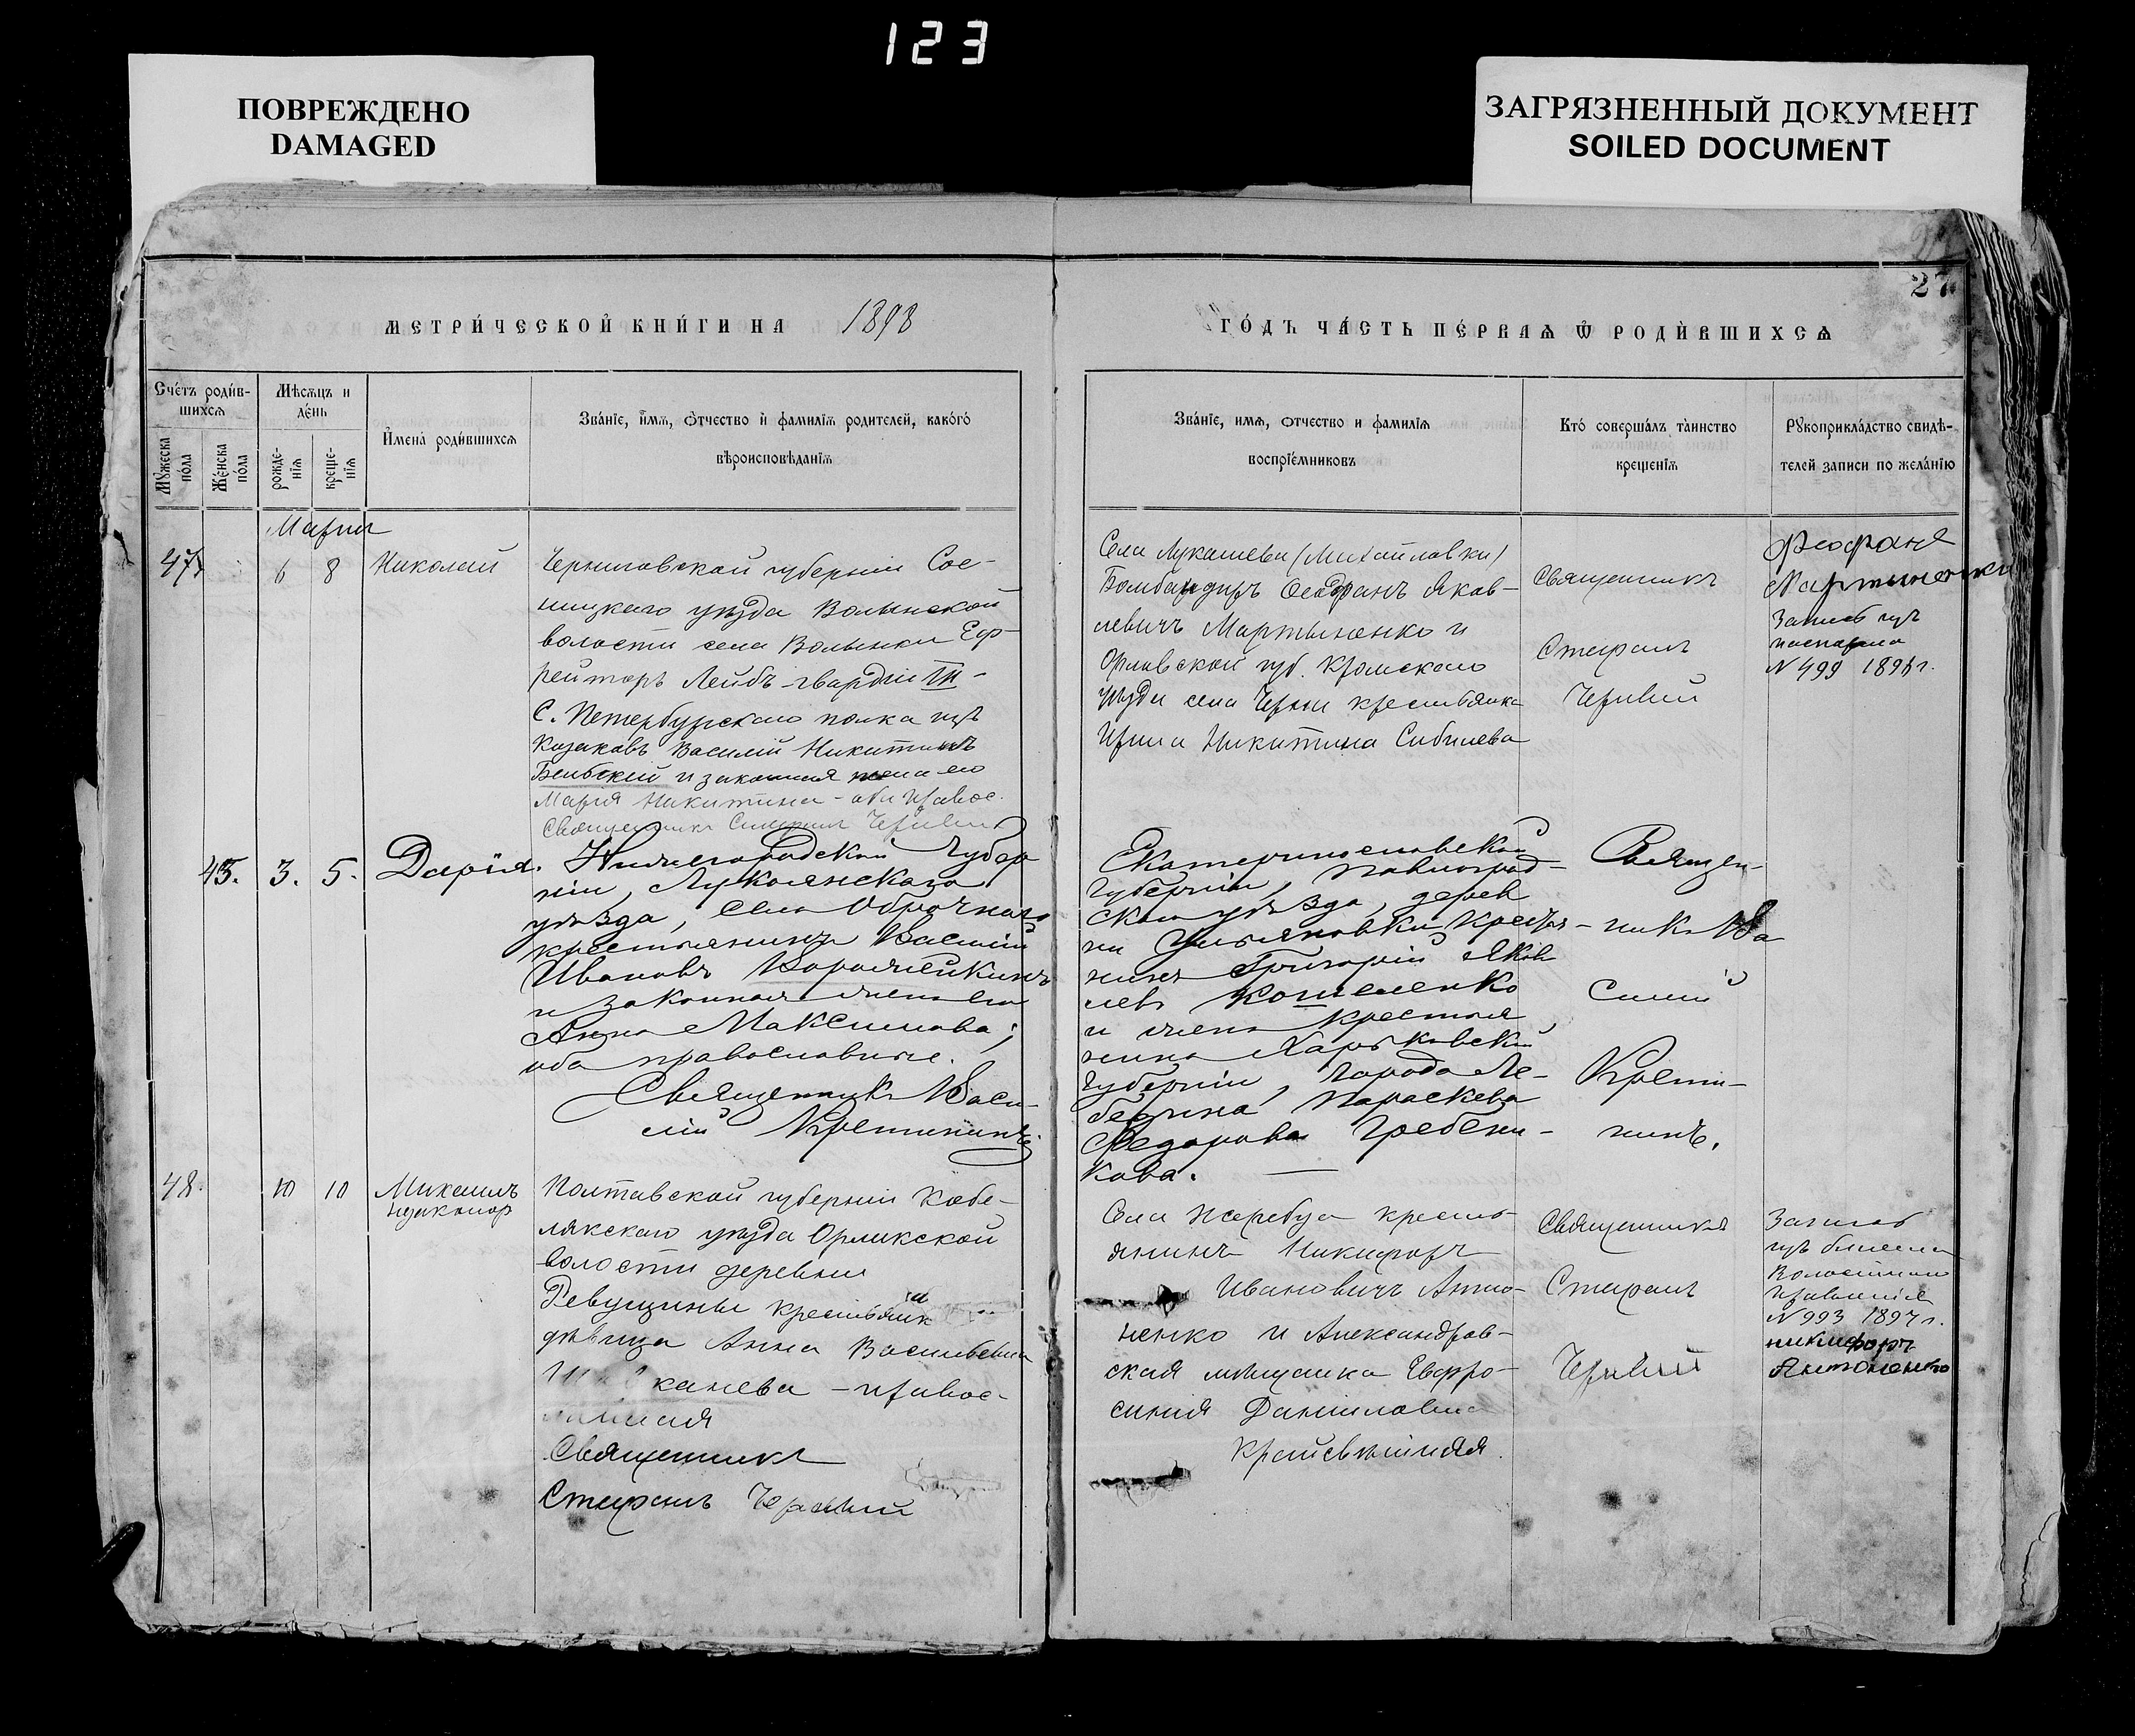 123
ПОВРЕЖДЕНО
DAMAGED
ЗАГРЯЗНЕННЫЙ ДОКУМЕНТ
SOILED DOCUMENT
27
МЕТРИ́ЧЕСКОЙ КНИ́ГИ НА 1898
ГО́ДЪ ЧА́СТЬ ПЕ́РВАѦ Ѿ РОДИ́ВШИХСѦ
Сче́тъ роди́в-
шихсѧ
Мꙋжеска
по́ла
Же́нска
по́ла
Мѣсѧцъ и
де́нь
рожде-
нїѧ
креще-
нїѧ
И҆мена̀ роди́вшихсѧ
Зва́нїе, и҆́мѧ, ѻ҆́тчество и҆ фамилїѧ родителей, како́гѡ́
вѣроисповѣ́данїѧ
Зва́нїе, имѧ, ѻтчество и фамилїѧ
воспрїе́мниковъ
Кто́ соверша́лъ та̀инство
креще́нїѧ
Рꙋкоприкла́дство свидѣ́-
телей записи по жела́нїю
Марта
47
6
8
Николай
Черниговской губерніи Сос-
ницкаго уѣзда Волынской
волости села Волынки Еф-
рейторъ Лейбъ-гвардіи
С. Петербургскаго полка изъ
Козаковъ Василій Никитинъ
Бельский и законная жена его
Марія Никитина - оба правос.
Священникъ Стефанъ Чернвій
Села Лукашева (Михайловки)
Бомбандиръ Феофанъ Яков-
левичъ Мартыненко и
Орловской губ. Кромскаго
уѣзда села Черни крестьянка
Ирина Никитина Сибилева
Священникъ
Стефанъ
Феофанъ
Мартиненки
Запись изъ
паспорта
N 499 1898 г.
45.
3.
5.
Дарія.
Нижегородской Губер
ніи, Лукоянскаго
уѣзда, села Оброчнаго
крестьянинъ Василій
Ивановъ
и законная жена его
Анна Максимова;
оба православные.
Священникъ Васи-
лій Кретининъ
Екатеринославской
Губерніи, Павлоград-
скаго уѣзда, дерев
ни Ульяновки Крестья-
нинъ Григорій Яков
левъ Кошеленко
и жена Крестья
нина Харьковской
Губерніи, города Ле-
бедина Параскева
Федорова Гребени-
кова.
Священ-
никъ Ва
силий
Крети-
нинъ.
48.
10
10
Михаилъ
Полтавской губерніи Кобе-
лякскаго уѣзда Орликской
волости деревни
Ревущины крестьянк
дѣвица Анна Васильевна
канева - правос-
лавная
Священникъ
Стефанъ
Села Жеребца кресть-
янинъ Никифоръ
Ивановичъ Анто-
ненко и Александров-
ская мѣщанка Евфро-
синія Даниловна
Священникъ
Стефанъ
Запись
изъ билета
Волостнаго
Правленія
N 993 1897 г.
никифоръ
Антоненко